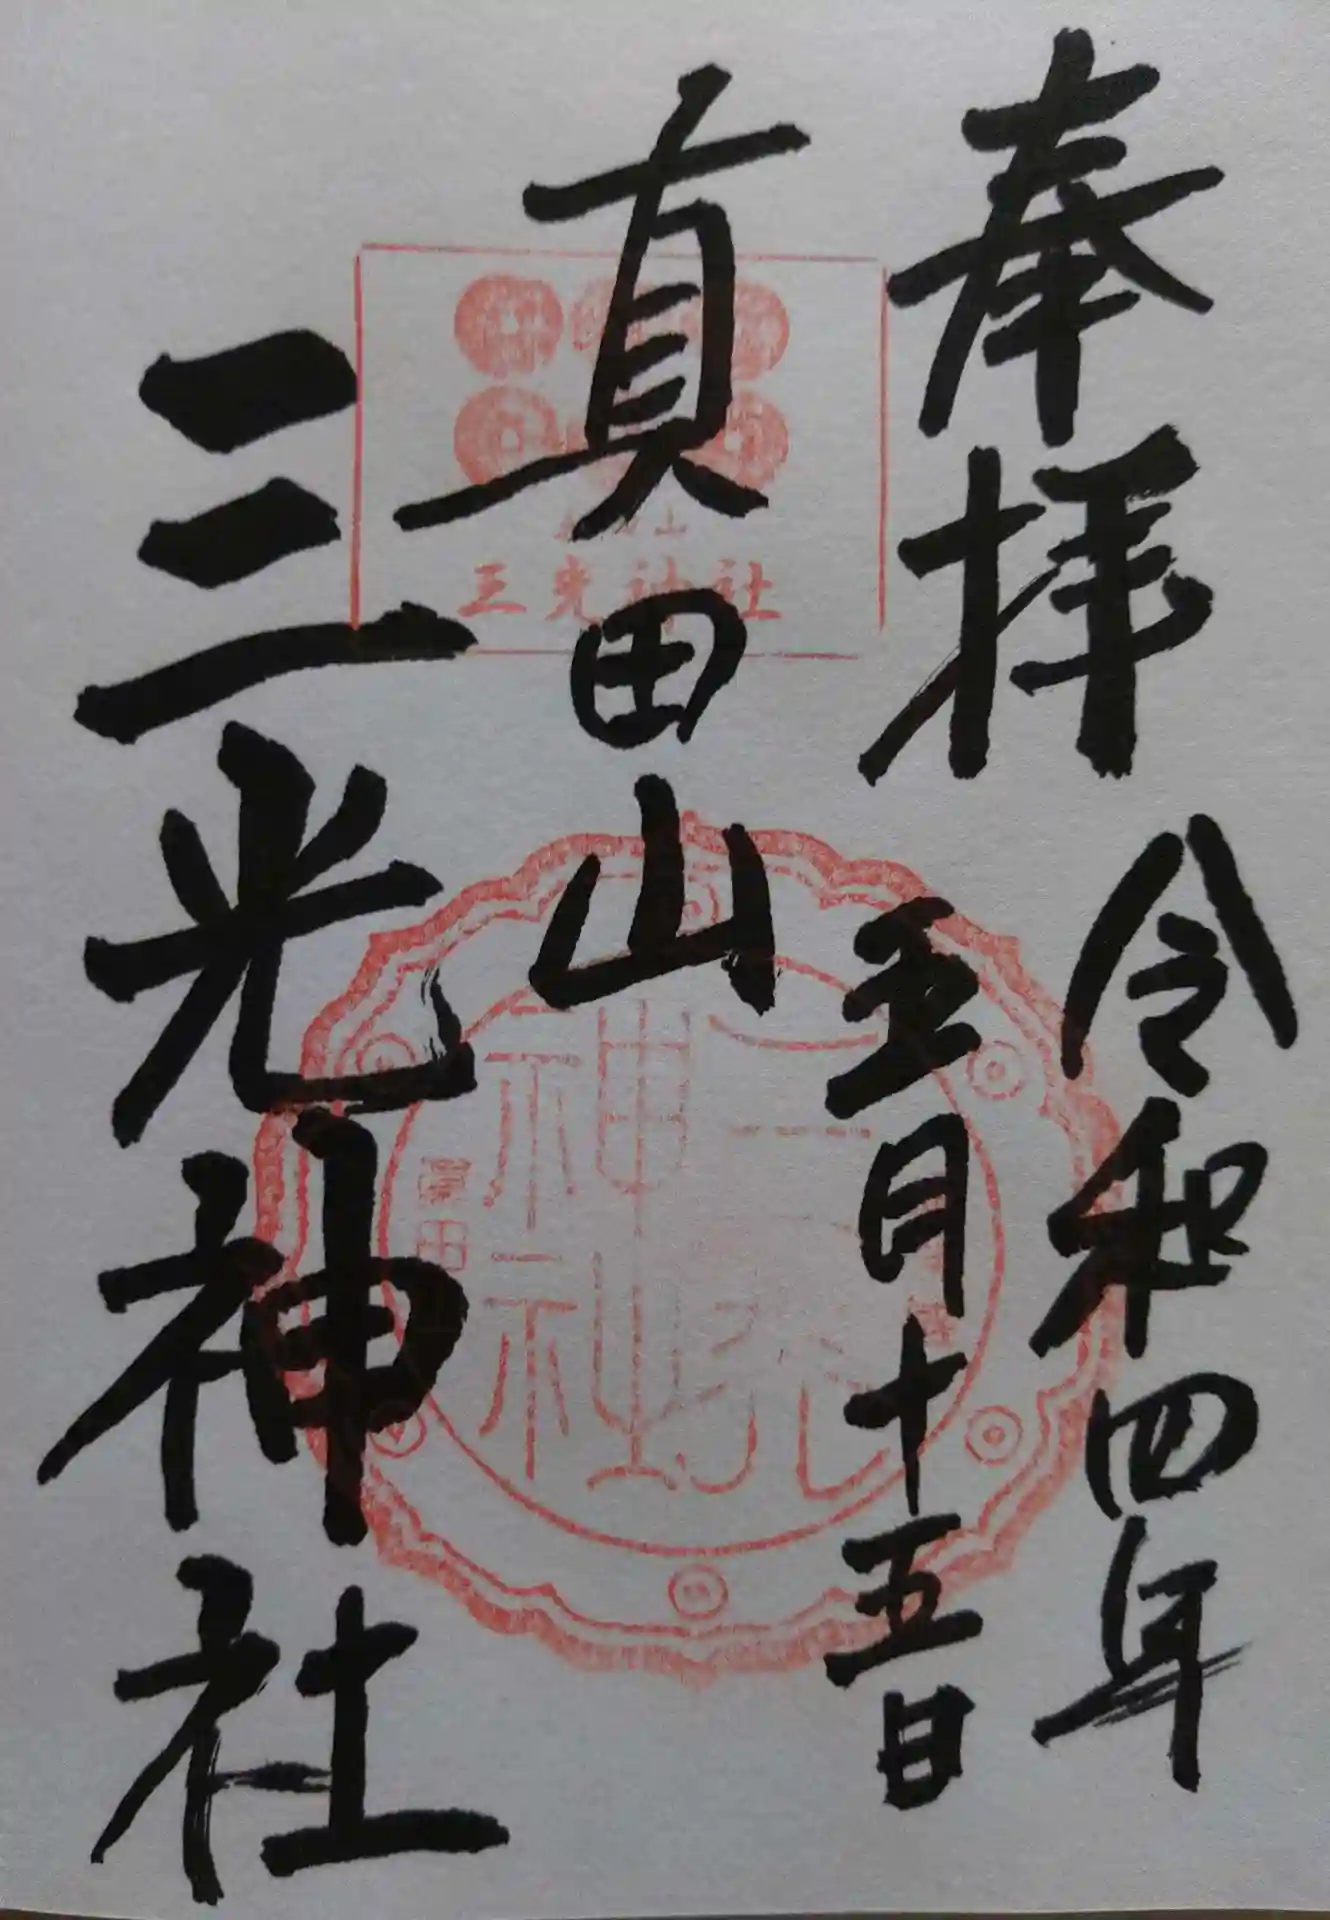 奉拝
令和四年
五月十五日
真田山
三光神社
三光神社
三光神社
真田